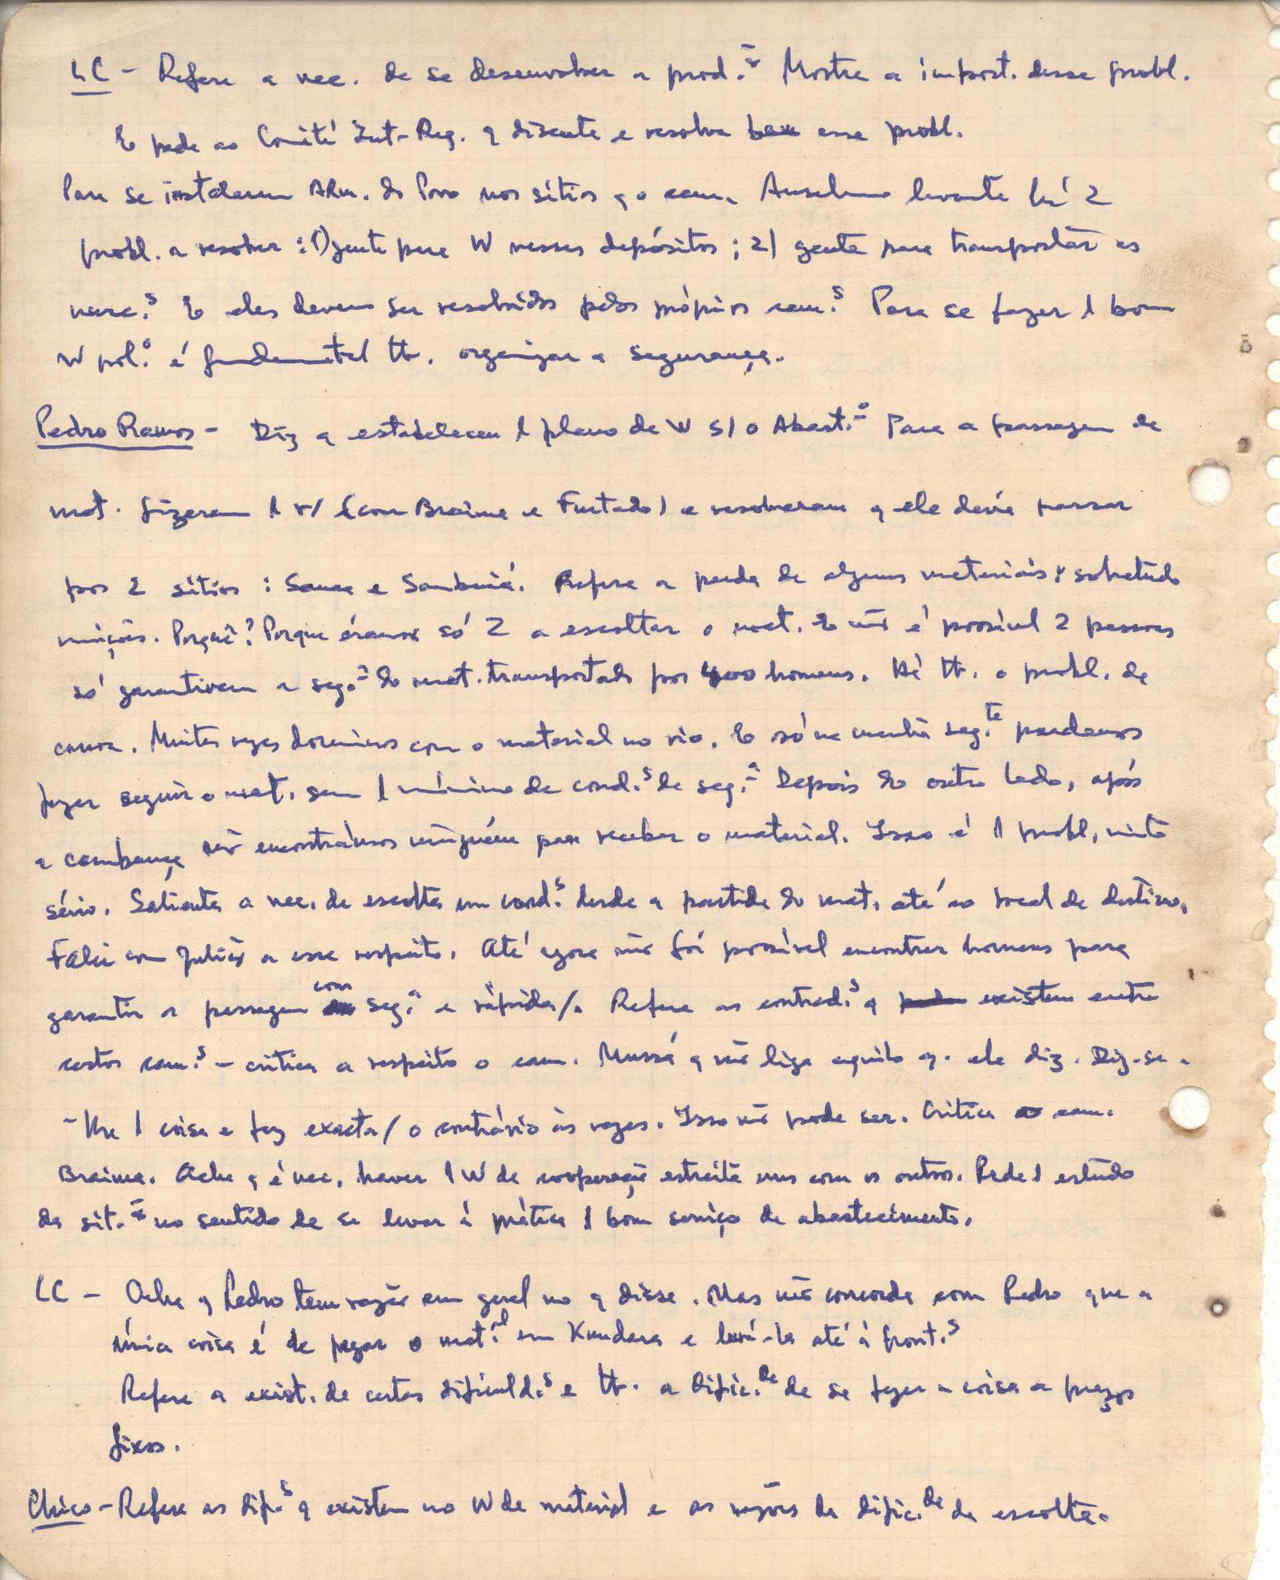 LC - Refere a nec. de se desenvolver a prod.ão Mostra a import. desse probl.
E pede ao Comité Int-Reg. q discuta e resolva bem esse probl.
Para se instalarem Arm. do Povo nos sítios q o cam. Anselmo levanta há 2
probl. a resolver: 1) gente para W nesses depósitos; 2) gente para transportar as
merc.s E eles devem ser resolvidos pelos próprios cam.s Para se fazer 1 bom
W pol.o é fundamental tb. organizar a segurança.
Pedro Ramos - Diz q estabeleceu 1 plano de W s/ o Abast.o Para a passagem de
mat. fizeram 1 r/ (com Braima e Furtado) e resolveram q ele devia passar
por 2 sítios: Sanca e Sambuiá. Refere a perda de alguns materiais, sobretudo
munições. Porquê? Porque éramos só 2 a escoltar o mat. E não é possível 2 pessoas
só garantirem a seg.a do mat. transportado por 400 homens. Há tb. o probl. de
canoa. Muitas vezes dormimos com o material no rio. E só na manhã seg.te pudemos
fazer seguir o mat. sem 1 mínimo de cond.s de seg.a Depois do outro lado, após
a cambança não encontrámos ninguém para receber o material. Isso é 1 probl. muito
sério. Salienta a nec. de escolta em cond.s desde a partida do mat. até ao local de destino.
Falei com Julião a esse respeito. Até agora não foi possível encontrar homens para
garantir a passagem com seg.a e rápida/. Refere as contrad.s q existem entre
certos cam.s - critica a respeito o cam. Mussá q não liga aquilo q. ele diz. Diz-se-
-lhe 1 coisa e faz exacta/ o contrário às vezes. Isso não pode ser. Critica o cam.
Braima. Acha q é nec. haver 1 W de cooperação estreita uns com os outros. Pede 1 estudo
da sit.ão no sentido de se levar à prática 1 bom serviço de abastecimento.
LC - Acha q Pedro tem razão em geral no q disse. Mas não concorda com Pedro que a
única coisa é de pegar o mat.al em Kundara e levá-lo até à front.s
Refere a exist. de certas dificuld.s e tb. a dific.de de se fazer a coisa a prazos
fixos.
Chico - Refere as dif.s q existem no W de material e as razões da dific.de da escolta.